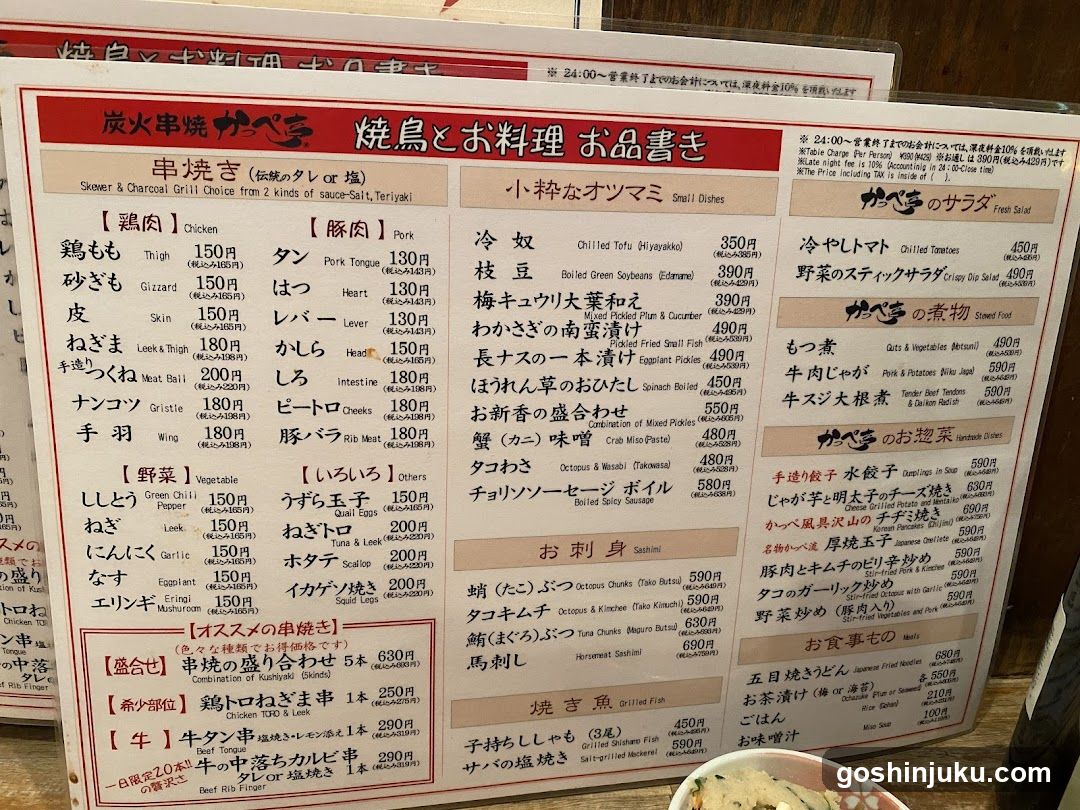 焼鳥とお料理 お品書き
※ 24:00～営業終了までのお会計については、深夜料金10% を頂戴いたします
炭火串焼 かっぺ亭 焼鳥とお料理 お品書き
※ 24:00～営業終了までのお会計については、深夜料金10% を頂戴いたします
※Table Charge (Per Person) ¥390(¥429) ※お通しは 390円(税込み429円)です。
※Late night fee is 10% (Accounting in 24:00-Close time)
※The Price including TAX is inside of ( ).
串焼き (伝統のタレ or 塩)
Skewer & Charcoal Grill Choice from 2 kinds of sauce-Salt, Teriyaki
【鶏肉】Chicken
鶏もも Thigh 150円 (税込み165円)
砂ぎも Gizzard 150円 (税込み165円)
皮 Skin 150円 (税込み165円)
ねぎま Leek & Thigh 180円 (税込み198円)
手造りつくね Meat Ball 200円 (税込み220円)
ナンコツ Gristle 180円 (税込み198円)
手羽 Wing 180円 (税込み198円)
【豚肉】Pork
タン Pork Tongue 130円 (税込み143円)
はつ Heart 130円 (税込み143円)
レバー Lever 130円 (税込み143円)
かしら Head 150円 (税込み165円)
しろ Intestine 180円 (税込み198円)
ピートロ Cheeks 180円 (税込み198円)
豚バラ Rib Meat 180円 (税込み198円)
【野菜】Vegetable
ししとう Green Chili Pepper 150円 (税込み165円)
ねぎ Leek 150円 (税込み165円)
にんにく Garlic 150円 (税込み165円)
なす Eggplant 150円 (税込み165円)
エリンギ Eringi Mushuroom 150円 (税込み165円)
【いろいろ】Others
うずら玉子 Quail Eggs 150円 (税込み165円)
ねぎトロ Tuna & Leek 200円 (税込み220円)
ホタテ Scallop 200円 (税込み220円)
イカゲソ焼き Squid Legs 200円 (税込み220円)
【オススメの串焼き】
(色々な種類でお得価格です)
【盛合せ】串焼の盛り合わせ 5本 630円 (税込み693円)
Combination of Kushiyaki (5kinds)
【希少部位】鶏トロねぎま串 1本 250円 (税込み275円)
Chicken TORO & Leek
【牛】牛タン串 塩焼き・レモン添え 1本 290円 (税込み319円)
Beef Tongue
一日限定20本!!の贅沢さ
牛の中落ちカルビ串 タレ or 塩焼き 1本 290円 (税込み319円)
Beef Rib Finger
小粋なオツマミ Small Dishes
冷奴 Chilled Tofu (Hiyayakko) 350円 (税込み385円)
枝豆 Boiled Green Soybeans (Edamame) 390円 (税込み429円)
梅キュウリ大葉和え Mixed Pickled Plum & Cucumber 390円 (税込み429円)
わかさぎの南蛮漬け Pickled Fried Small Fish 490円 (税込み539円)
長ナスの一本漬け Eggplant Pickles 490円 (税込み539円)
ほうれん草のおひたし Spinach Boiled 450円 (税込み495円)
お新香の盛合わせ Combination of Mixed Pickles 550円 (税込み605円)
蟹(カニ)味噌 Crab Miso(Paste) 480円 (税込み528円)
タコわさ Octopus & Wasabi (Takowasa) 480円 (税込み528円)
チョリソソーセージ ボイル Boiled Spicy Sausage 580円 (税込み638円)
お刺身 Sashimi
蛸(たこ)ぶつ Octopus Chunks (Tako Butsu) 590円 (税込み649円)
タコキムチ Octopus & Kimchee (Tako Kimuchi) 590円 (税込み649円)
鮪(まぐろ)ぶつ Tuna Chunks (Maguro Butsu) 630円 (税込み693円)
馬刺し Horsemeat Sashimi 690円 (税込み759円)
焼き魚 Grilled Fish
子持ちししゃも (3尾) Grilled Shishamo Fish 450円 (税込み495円)
サバの塩焼き Salt-grilled Mackerel 590円 (税込み649円)
かっぺ亭のサラダ Fresh Salad
冷やしトマト Chilled Tomatoes 450円 (税込み495円)
野菜のスティックサラダ Crispy Dip Salad 490円 (税込み539円)
かっぺ亭の煮物 Stewed Food
もつ煮 Guts & Vegetables (Motsuni) 490円 (税込み539円)
牛肉じゃが Pork & Potatoes (Niku Jaga) 590円 (税込み649円)
牛スジ大根煮 Tender Beef Tendons & Daikon Radish 590円 (税込み649円)
かっぺ亭のお惣菜 Handmade Dishes
手造り餃子 水餃子 Dumplings in Soup 590円 (税込み649円)
じゃが芋と明太子のチーズ焼き Cheese Grilled Potato and Mentaiko 630円 (税込み693円)
かっぺ風具沢山のチヂミ焼き Korean Pancakes (Chijimi) 690円 (税込み759円)
名物かっぺ流 厚焼玉子 Japanese Omellete 590円 (税込み649円)
豚肉とキムチのピリ辛炒め Stir-fried Pork & Kimchee 590円 (税込み649円)
タコのガーリック炒め Stir-fried Octopus with Garlic 590円 (税込み649円)
野菜炒め (豚肉入り) Stir-fried Vegetables and Pork 590円 (税込み649円)
お食事もの Meals
五目焼きうどん Japanese Fried Noodles 680円 (税込み748円)
お茶漬け (梅 or 海苔) Ochazuke (Plum or Seaweed) 各550円
ごはん Rice (Gohan) 210円
お味噌汁 Miso Soup 100円
goshinjuku.com